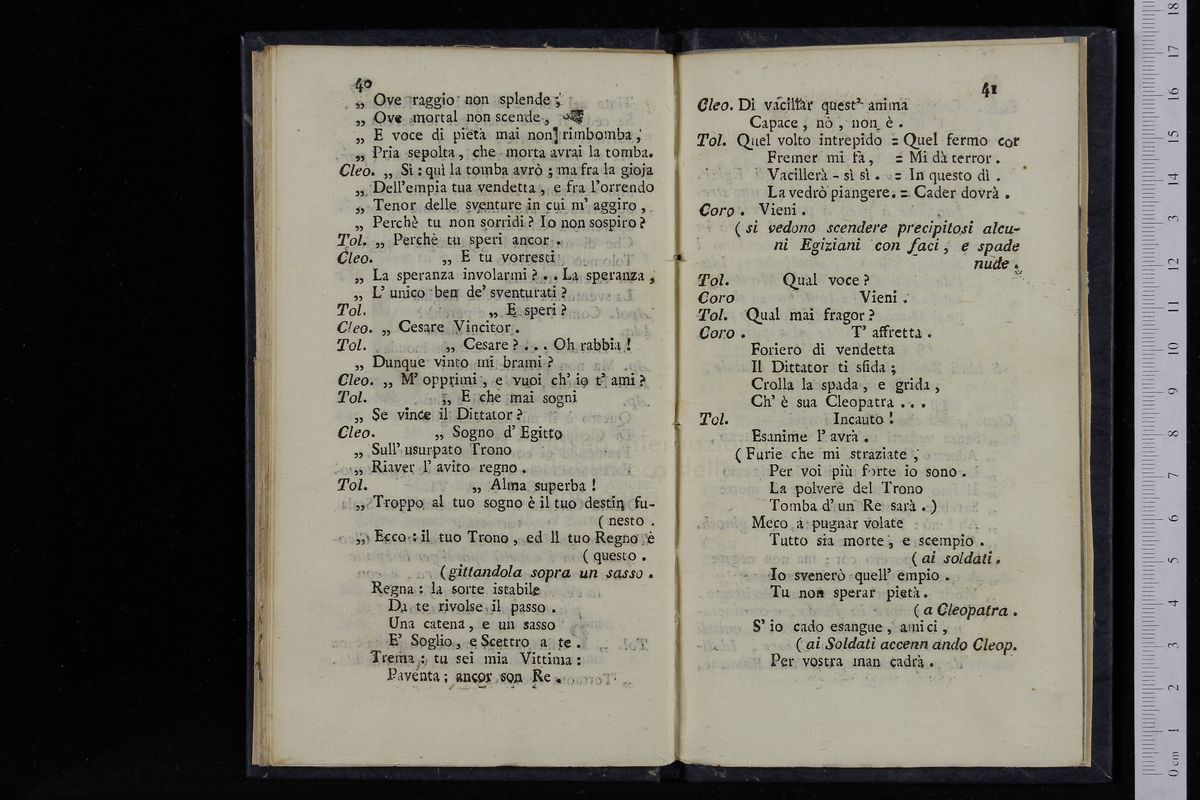 40
„ Ove raggio non splende ;
„ Ove mortal non scende ,
„ E voce di pietà mai non rimbomba ,
„ Pria sepolta , che morta avrai la tomba.
Cleo. „ Sì : quì la tomba avrò ; ma fra la gioja
„ Dell'empia tua vendetta , e fra l'orrendo
„ Tenor delle sventure in cui m' aggiro ,
„ Perchè tu non sorridi ? Io non sospiro ?
Tol. „ Perchè tu speri ancor .
Cleo. „ E tu vorresti
„ La speranza involarmi ? . . La speranza ,
„ L' unico ben de' sventurati ?
Tol. „ E speri ?
Cleo. „ Cesare Vincitor .
Tol. „ Cesare ? . . . Oh rabbia !
„ Dunque vinto mi brami ?
Cleo. „ M' opprimi , e vuoi ch' io t' ami ?
Tol. „ E che mai sogni
„ Se vince il Dittator ?
Cleo. „ Sogno d' Egitto
„ Sull' usurpato Trono
„ Riaver l' avito regno .
Tol. „ Alma superba !
„ Troppo al tuo sogno è il tuo destin fu-
( nesto .
„ Ecco : il tuo Trono , ed Il tuo Regno è
( questo .
(gittandola sopra un sasso .
Regna : la sorte istabile
Da te rivolse il passo .
Una catena , e un sasso
E' Soglio , e Scettro a te .
Trema : tu sei mia Vittima :
Paventa ; ancor son Re .
41
Cleo. Di vacillar quest' anima
Capace , nò , non è .
Tol. Quel volto intrepido = Quel fermo cor
Fremer mi fà , = Mi dà terror .
Vacillerà - sì sì . = In questo dì .
La vedrò piangere. = Cader dovrà .
Coro . Vieni .
( si vedono scendere precipitosi alcu-
ni Egiziani con faci , e spade
nude .
Tol. Qual voce ?
Coro Vieni .
Tol. Qual mai fragor ?
Coro . T' affretta .
Foriero di vendetta
Il Dittator ti sfida ;
Crolla la spada , e grida ,
Ch' è sua Cleopatra . . .
Tol. Incauto !
Esanime l' avrà .
( Furie che mi straziate ,
Per voi più forte io sono .
La polvere del Trono
Tomba d' un Re sarà . )
Meco a pugnar volate
Tutto sia morte , e scempio .
( ai soldati .
Io svenerò quell' empio .
Tu non sperar pietà .
( a Cleopatra .
S' io cado esangue , amici ,
( ai Soldati accenn ando Cleop.
Per vostra man cadrà .